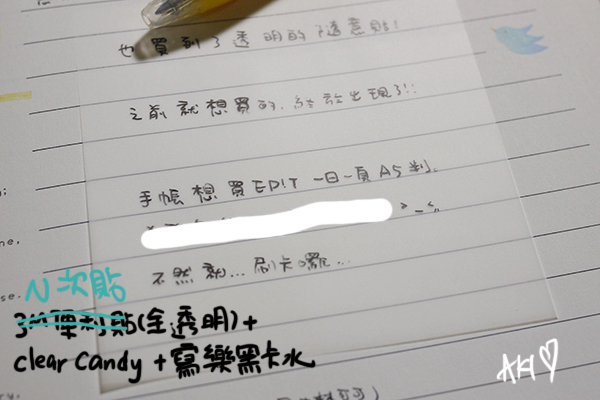 也買到了透明的隨意貼!
之前就想買的.終於出現了!!
手帳想買EDiT一日一頁A5判.
不然就...刷卡囉...
se.
N次貼
3M便利貼(全透明)+
clear candy +寫樂黑卡水
AKI♡